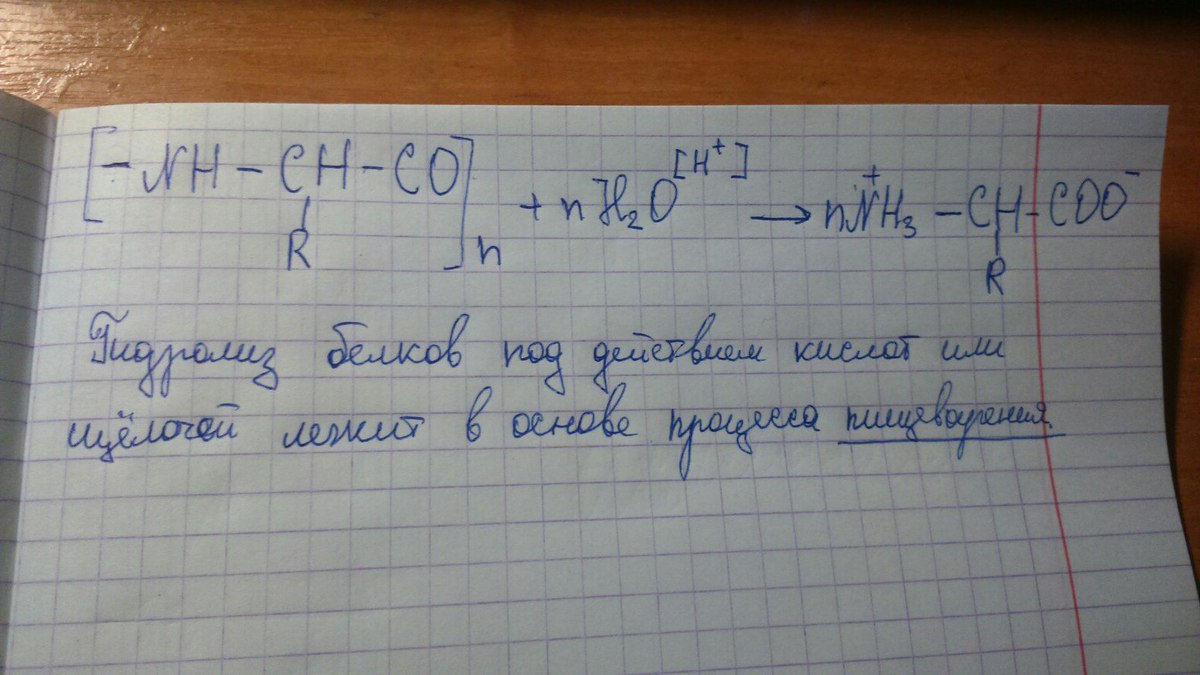 [- NH - CH - CO]n + n H₂O [H⁺] → nN⁺H₃ - CH - COO⁻
R R
Гидролиз белков под действием кислот или
щёлочей лежит в основе процесса пищеварения.